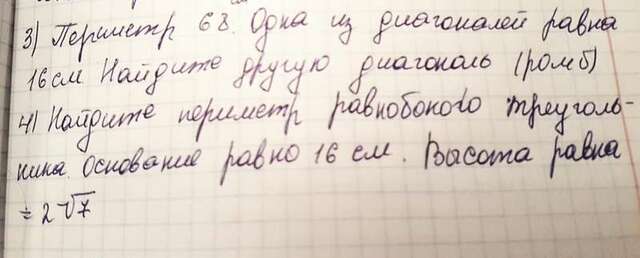 3) Периметр 68. Одна из диагоналей равна
16 см Найдите другую диагональ (ромб)
4) Найдите периметр равнобокого треуголь-
ника. основание равно 16 см. Высота равна
= 2√7